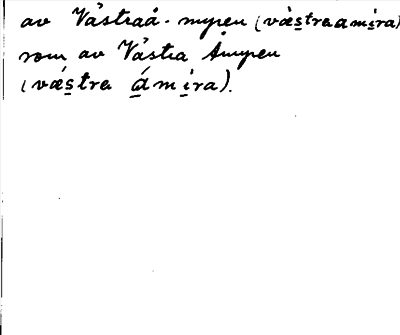 av Västraå-myren (væ̀stra amíra)
som av Västra Åmyren
(vǽstra ámira).